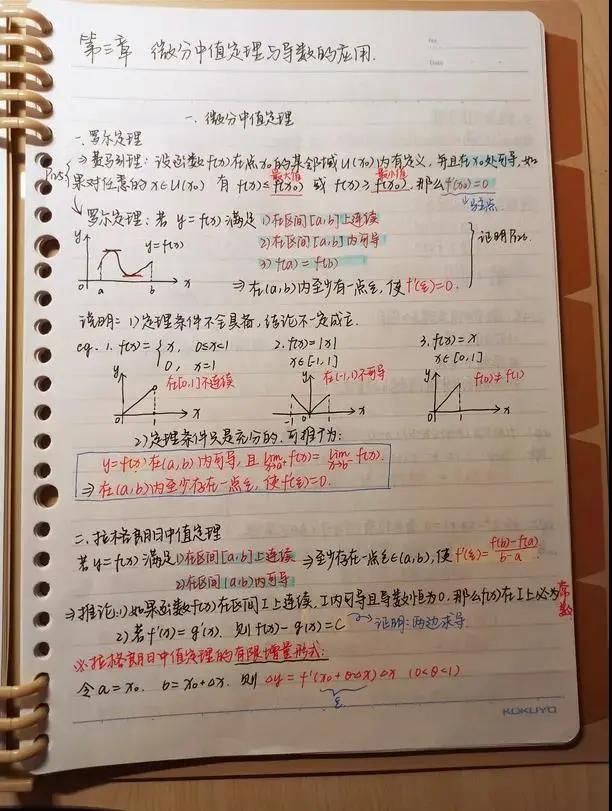 No.
Date
第三章 微分中值定理与导数的应用.
一. 微分中值定理
一. 罗尔定理
⇒ 费马引理: 设函数f(x)在点x0的某邻域U(x0)内有定义, 并且在x0处可导, 如
果对任意的x∈U(x0) 有 f(x)≤f(x0) 或 f(x)≥f(x0), 那么f'(x0)=0
最大值 最小值
↳驻点
↓罗尔定理: 若 y=f(x) 满足 1)在区间[a,b]上连续
2)在区间(a,b)内可导
3) f(a)=f(b)
⇒ 在(a,b)内至少有一点ξ, 使 f'(ξ)=0.
y y=f(x)
0 a b x
说明: 1)定理条件不全具备, 结论不一定成立.
eg. 1. f(x)={x, 0≤x<1 2. f(x)=|x| 3. f(x)=x
0, x=1 x∈[-1,1] x∈[0,1]
y 在[0,1]不连续 y 在(-1,1)不可导 y f(0)≠f(1)
0 1 x -1 0 1 x 0 1 x
2)定理条件只是充分的. 可推广为:
y=f(x)在(a,b)内可导, 且 lim x→a+ f(x)= lim x→b- f(x).
⇒ 在(a,b)内至少存在一点ξ, 使f'(ξ)=0.
二. 拉格朗日中值定理
若y=f(x)满足 1)在区间[a,b]上连续 ⇒至少存在一点ξ∈(a,b), 使 f'(ξ)=f(b)-f(a)/b-a.
2)在区间(a,b)内可导
⇒推论: 1)如果函数f(x)在区间I上连续, I内可导且导数恒为0, 那么f(x)在I上必为常数
2)若f'(x)=g'(x). 则 f(x)-g(x)=C 证明: 两边求导
※拉格朗日中值定理的有限增量形式:
令a=x0. b=x0+Δx. 则 Δy=f'(x0+θΔx)Δx (0<θ<1)
ξ
KOKUYO